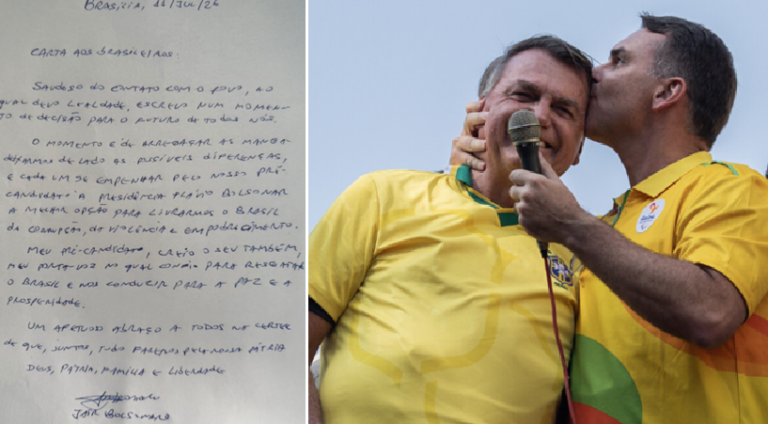 BRASÍLIA, 11/JUL/26
CARTA AOS BRASILEIROS.
SAUDOSO DO CONTATO COM O POVO, AO
QUAL DEVO LEALDADE, ESCREVO NUM MOMEN-
TO DE DECISÃO PARA O FUTURO DE TODOS NÓS.
O MOMENTO É DE ARREGAÇAR AS MANGA
DEIXARMOS DE LADO AS POSSÍVEIS DIFERENÇAS,
E CADA UM SE EMPENHAR PELO NOSSO PRÉ-
CANDIDATO À PRESIDÊNCIA FLÁVIO BOLSONARO
A MELHOR OPÇÃO PARA LIVRARMOS O BRASIL
DA CORRUPÇÃO, DA VIOLÊNCIA E EMPOBRECIMENTO.
MEU PRÉ-CANDIDATO, CREIO O SEU TAMBÉM,
MEU PORTA-VOZ NO QUAL CONFIO PARA RESGATAR
O BRASIL E NOS CONDUZIR PARA A PAZ E A
PROSPERIDADE.
UM APERTADO ABRAÇO A TODOS NA CERTEZA
DE QUE, JUNTOS, TUDO FAREMOS PELA NOSSA PÁTRIA
DEUS, PÁTRIA, FAMÍLIA E LIBERDADE
JAIR BOLSONARO